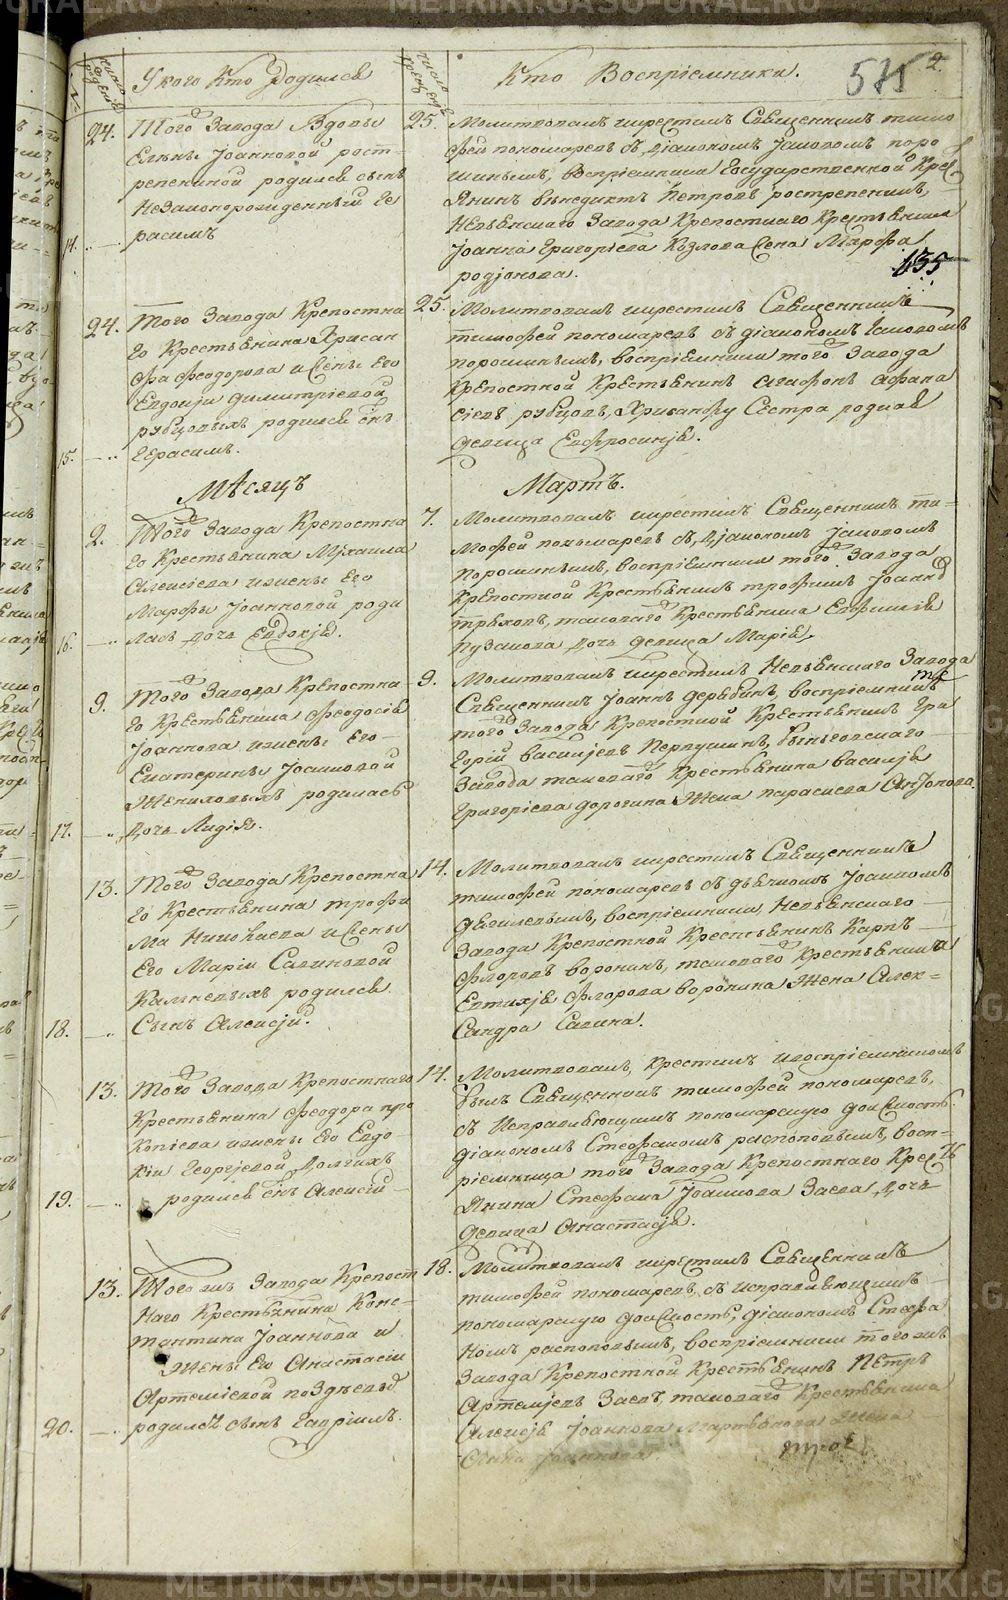 У кого кто родился
Кто воспріемники.
575
2.
24.
Того Завода Вдовы
Елены Іоанновой рост-
репениной родился сынъ
незаконорожденный Ге
расимъ
14.
25.
Молитвовалъ икрестилъ Священникъ тимо
фей пономаревъ съ діакономъ Іаковомъ поро
шинымъ, воспріемники Государственной Крес
янинъ Венедиктъ Петровъ ростретенинъ,
Невьянскаго Завода Крепостнаго Крестьянина
Іоанна Григоріева Козлова Жена Марфа
родіонова.
135
24.
Того Завода Крепостна
го Крестьянина Хрисан
фа Феодорова и Жены Его
Евдокіи Димитріевой
рубцовыхъ родился сынъ
Герасимъ.
15.
25.
Молитвовалъ икрестилъ Священникъ
тимофей пономаревъ съ діакономъ Іаковомъ
порошинымъ, воспріемники того Завода
Крепостной Крестьянинъ Агафонъ Афана
сіевъ рубцовъ, Хрисанфу Сестра родная
девица Евфросинія.
Мѣсяцъ
Мартъ.
2.
Того Завода Крепостна
го Крестьянина Михаила
Алексіева ижены Его
Марфы Іоанновой роди
лась дочь Евдокія.
16.
7.
Молитвовалъ икрестилъ Священникъ ти-
мофей пономаревъ съ діакономъ Іаковомъ
порошинымъ, воспріемники того Завода
Крепостной Крестьянинъ трофимъ Іоанно
таковаго Крестьянина Евфимія
пузанова дочь девица Марія.
9.
Того Завода Крепостна
го Крестьянина Феодосія
Іоаннова ижены Его
Екатерины Іоакимовой
родилась
дочь Лидія.
17.
9.
Молитвовалъ икрестилъ Невьянскаго Завода
Священникъ Іоаннъ дерябинъ, воспріемники
того Завода Крепостной Крестьянинъ Гри
горій васильевъ Перпушинъ, быньговскаго
Завода таковаго Крестьянина василія
Григоріева дорогина Жена параскева Антонова.
13.
Того Завода Крепостна
го Крестьянина трофи
ма Николаева и Жены
Его Маріи Савиновой
родился
Сынъ Алексій.
18.
14.
Молитвовалъ икрестилъ Священникъ
тимофей пономаревъ съ дьячкомъ Іоанномъ
воспріемники, Невьянскаго
Завода Крепостной Крестьянинъ Карпъ
Флоровъ воронинъ, таковаго Крестьянина
Евтихія Флорова воронина Жена Алек-
сандра Савина.
13.
Того Завода Крепостнаго
Крестьянина Феодора про
копіева ижены Его Евдо-
кіи Георгіевой Долгихъ
родился сынъ Алексій
19.
14.
Молитвовалъ, крестилъ ивоспріемникомъ
былъ Священникъ тимофей пономаревъ,
съ Исправляющимъ пономарскую должность
діакономъ Стефаномъ распоповымъ, восп-
ріемница того Завода Крепостнаго Крест
янина Стефана Іоаннова Заева дочь
девица Анастасія.
13.
Того жъ Завода Крепост
наго Крестьянина Конс-
тантина Іоаннова и
Жены Его Анастасіи
Артеміевой поздѣевыхъ
родился сынъ Гавріилъ.
20.
18.
Молитвовалъ икрестилъ Священникъ
тимофей пономаревъ, съ исправляющимъ
пономарскую должность, діакономъ Стефа
номъ распоповымъ, воспріемники того жъ
Завода Крепостной Крестьянинъ Петръ
Артеміевъ Заевъ, таковаго Крестьянина
Алексія Іоаннова Мартьянова Жена
Анна Іоаннова.
METRIKI.GASO-URAL.RU